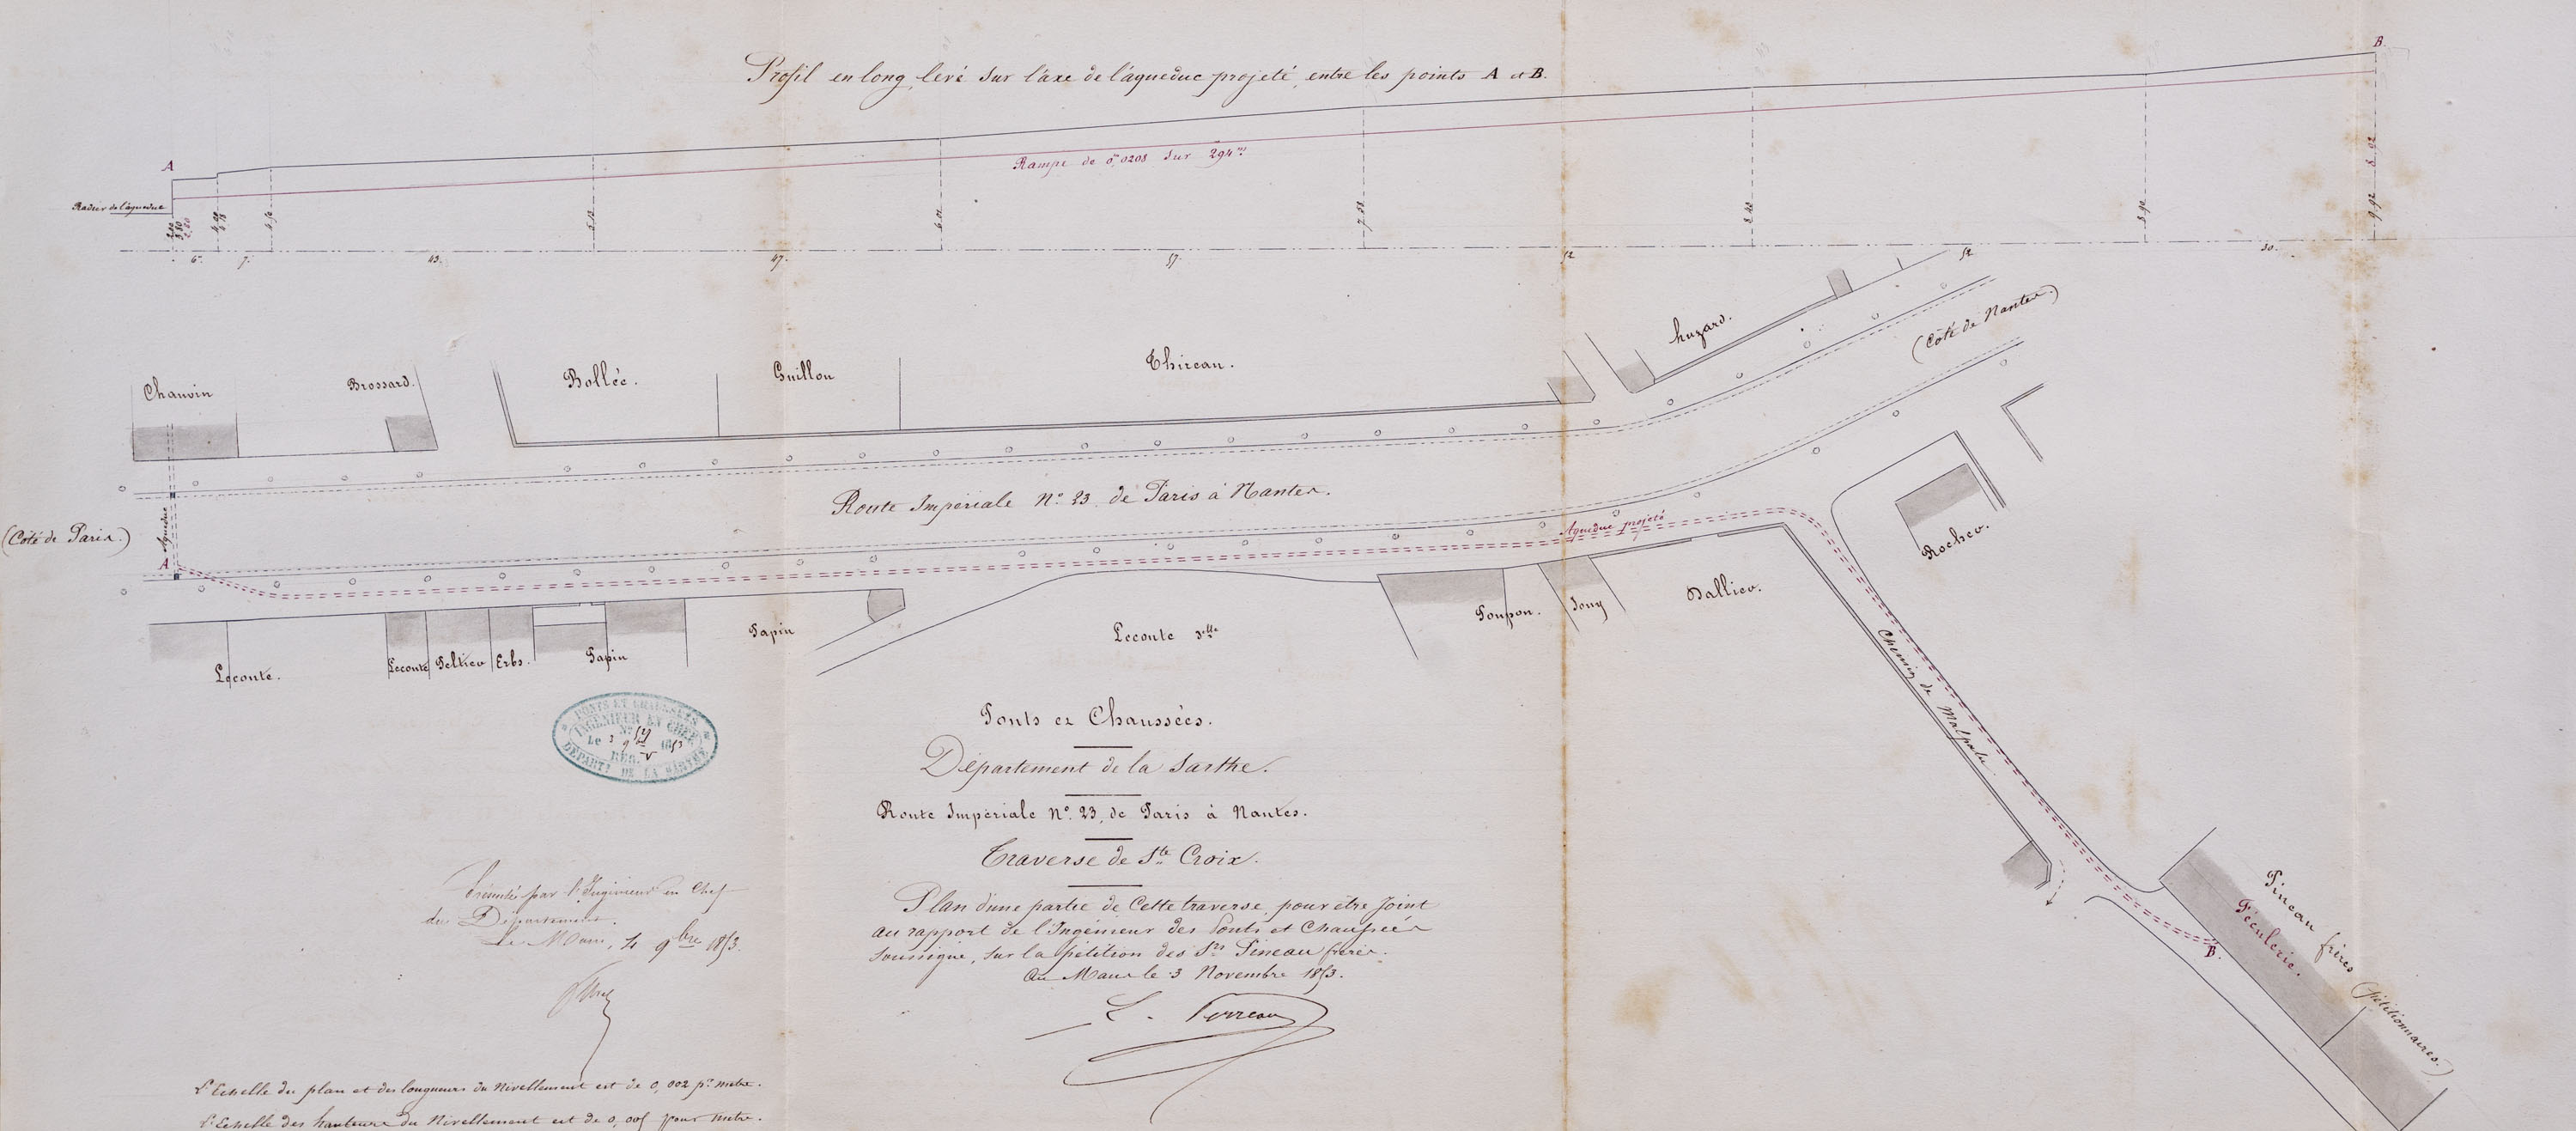 B.
Profil en long, levé sur l'axe de l'aqueduc projeté, entre les points A et B.
Rampe de 0,m0208 sur 294m.
A
Radier de l'aqueduc
6. 7. 43. 47. 57. 52 52 30.
Chauvin
Brossard.
Bollée.
Guillou
Thireau.
huzard.
(Côté de Nantes.)
Route Impériale N.° 23. de Paris à Nantes.
(Côté de Paris.)
Aqueduc
A
Aqueduc projeté
Rocher.
Leconte.
Leconte
Peltier
Erbs.
Papin
Papin
Leconte
Poupon.
Jouy
Dallier.
Chemin de Malpalu.
Pineau frères (pétitionnaires.)
Féculerie.
B.
PONTS ET CHAUSSÉES
INGÉNIEUR EN CHEF
Le 3 9bre 1853
REG.
DÉPARTT DE LA SARTHE
Ponts et Chaussées.
Département de la Sarthe.
Route Impériale N.° 23, de Paris à Nantes.
Traverse de Ste Croix.
Plan d'une partie de Cette traverse, pour être joint
au rapport de l'Ingénieur des Ponts et Chaussées
soussigné, sur la pétition des Srs Pineau frères.
Au Mans le 3 Novembre 1853.
par l'Ingénieur en Chef
du Département.
Le Mans, 4 9bre 1853.
L'Echelle du plan et des longueurs du Nivellement est de 0,002 pr. metre.
L'Echelle des hauteurs du Nivellement est de 0,005 pour metre.